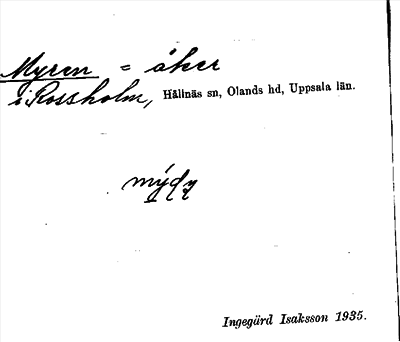 Myren = åker
i Rossholm, Hållnäs sn, Olands hd, Uppsala län.
Ingegärd Isaksson 1935.